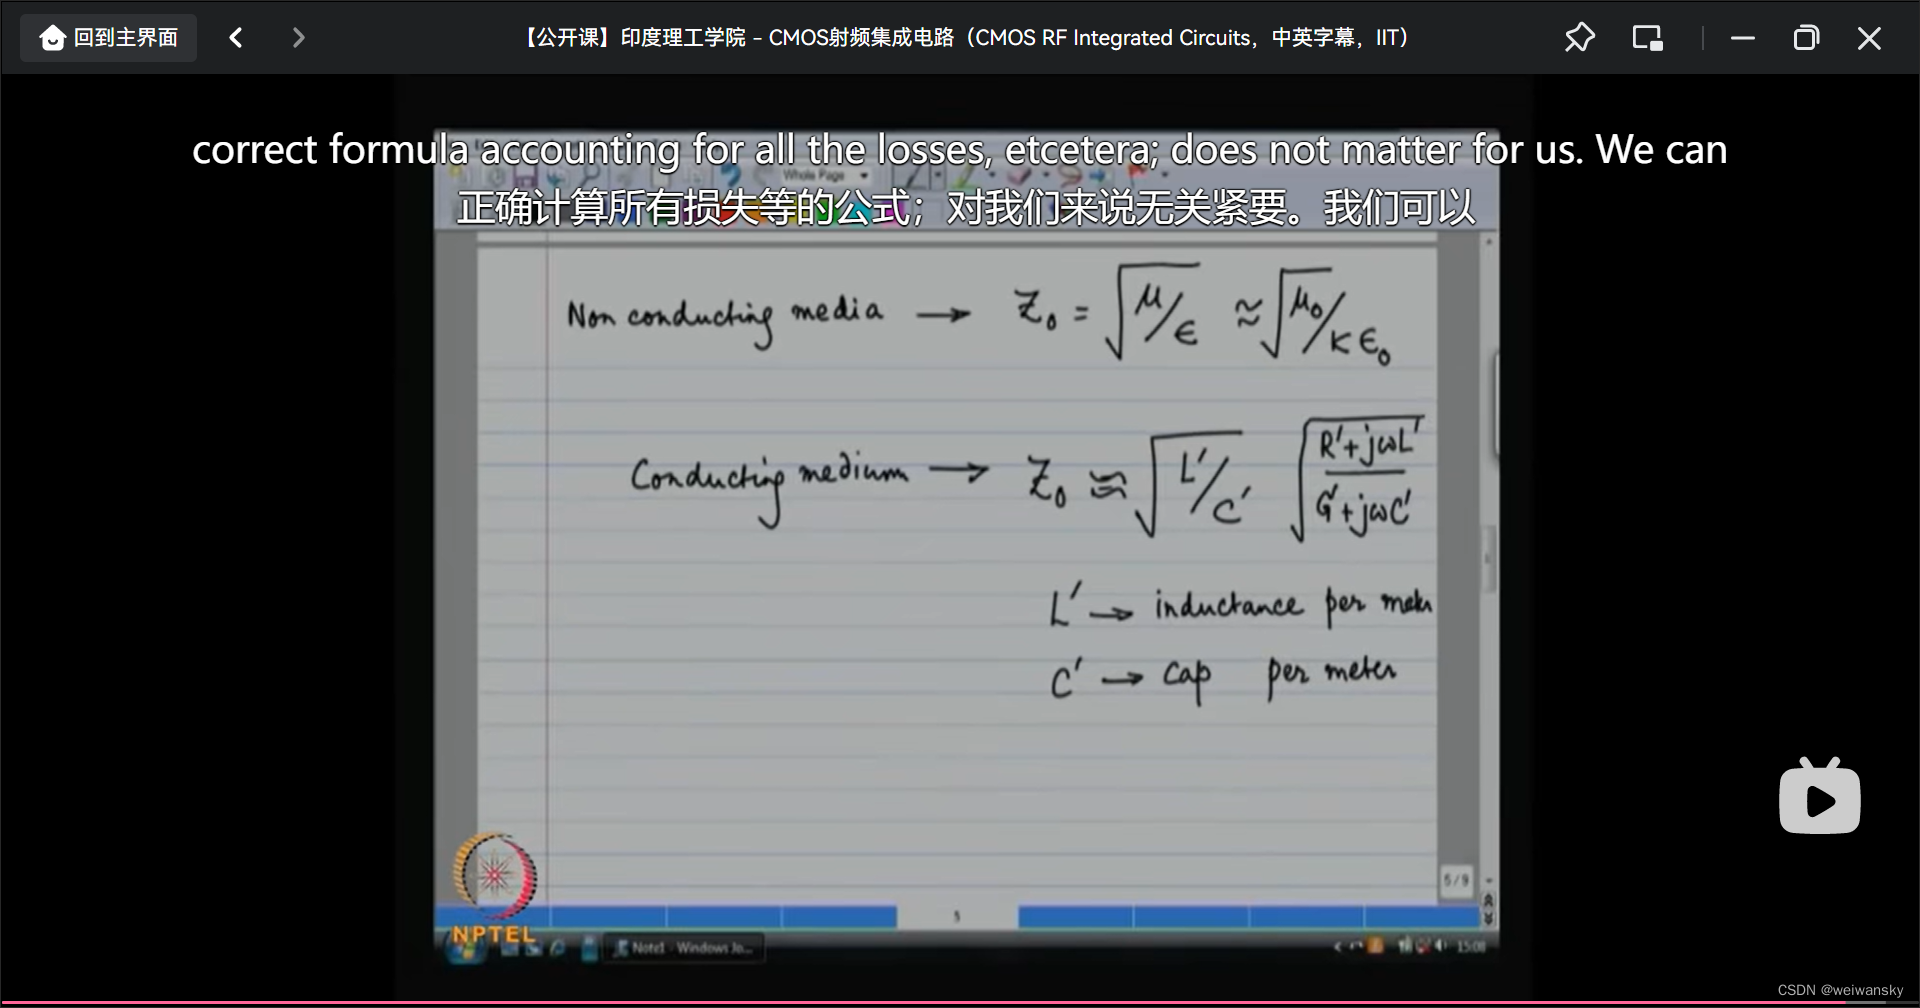 回到主界面
【公开课】印度理工学院 – CMOS射频集成电路（CMOS RF Integrated Circuits，中英字幕，IIT）
correct formula accounting for all the losses, etcetera; does not matter for us. We can
Whole Page
正确计算所有损失等的公式；对我们来说无关紧要。我们可以
Non conducting media → Z₀ = √(μ/ε) ≈ √(μ₀/κε₀)
Conducting medium → Z₀ ≈ √(L'/C') √((R'+jωL')/(G'+jωC'))
L' → inductance per meter
C' → cap per meter
5/9
5
NPTEL
Note1 - Windows Jo...
15:08
CSDN @weiwansky